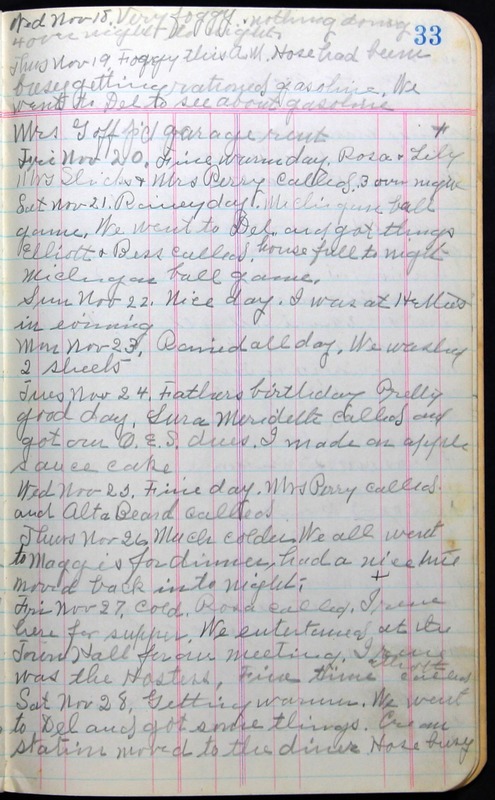 33
Wed Nov 18. Very foggy. nothing doing
4 over night to night
Thus Nov 19 Foggy this A.M. Hose had been
busy getting rationed gasoline. We
went to Del to see about gasoline
Mrs Goff p'd garage rent
Fri Nov 20. Fine warm day. Rosa & Lily
Mrs Slicks & Mrs Perry called. 3 over night
Sat Nov 21. Rainey day. Michigan ball
game. We went to Del. and got things
Elliott & Bess called, house full to night
Michigan ball game.
Sun Nov 22. Nice day. I was at Hettie's
in evining
Mon Nov 23, Rained all day. We washed
2 sheets
Tues Nov 24. Fathers birthday Pretty
good day. Sura Merideth called and
got our O.E.S. dues. I made an apple
sauce cake
Wed Nov 25. Fine day. Mrs Perry called.
and Alta Beard called
Thurs Nov 26 Much colder. We all went
to Maggies for dinner, had a nice time
moved back in to night.
Fri Nov 27, Cold. Rosa called. Irene
here for supper. We entertained at the
Town Hall for our meeting. Irene
was the Hostess, Fine time Elliott called
Sat Nov 28, Getting warmer. We went
to Del and got some things. Cream
station moved to the diner Hose busy